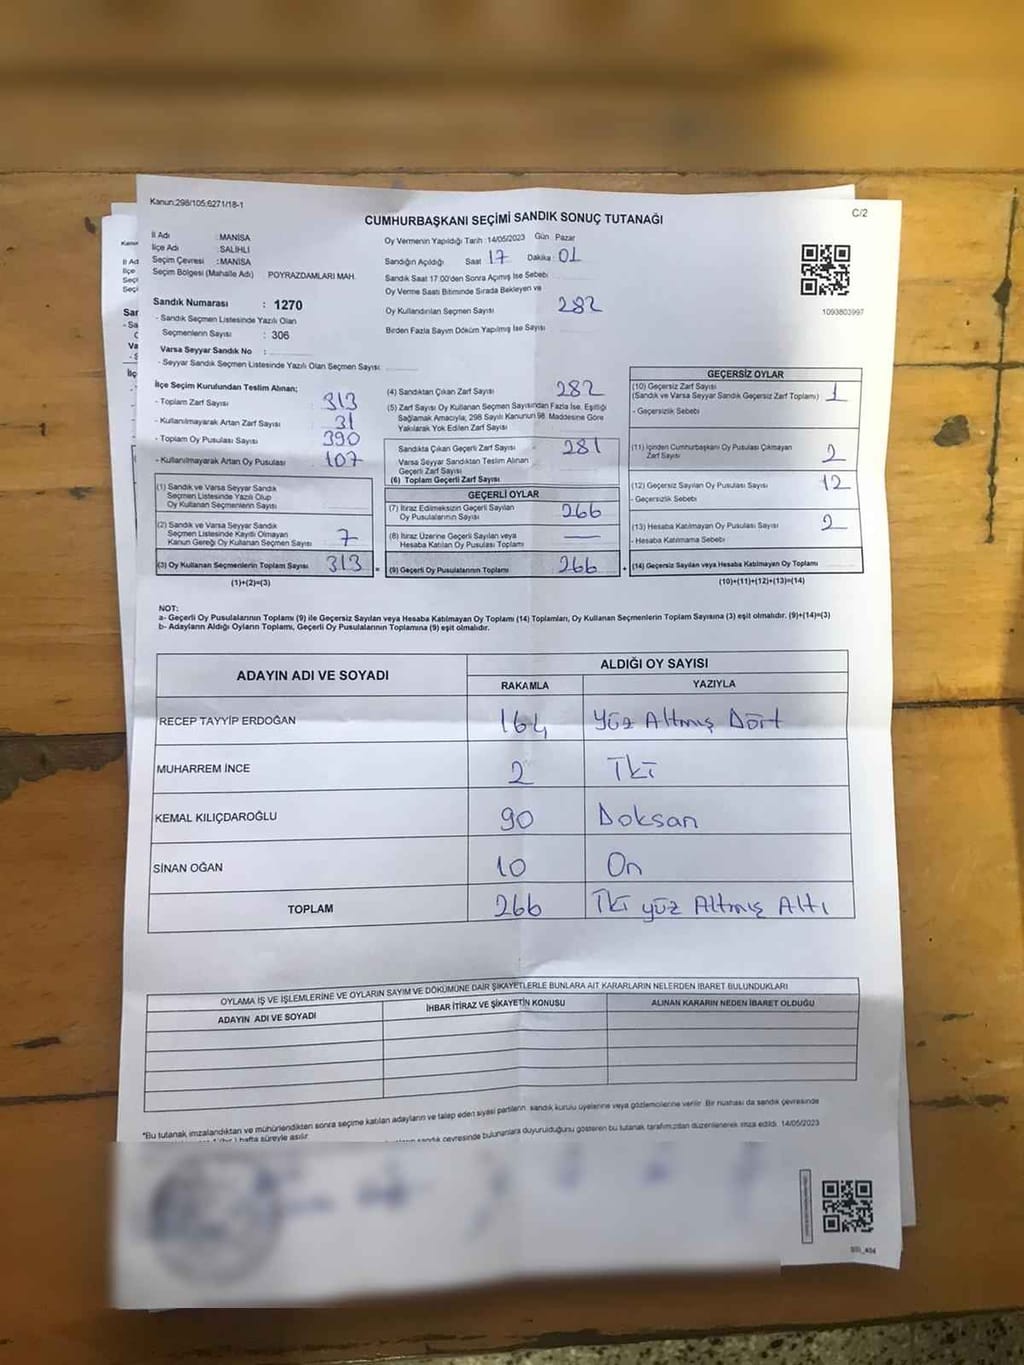 Kanun:298/105;6271/18-1
CUMHURBAŞKANI SEÇİMİ SANDIK SONUÇ TUTANAĞI
C/2
İl Adı : MANİSA
İlçe Adı : SALİHLİ
Seçim Çevresi : MANİSA
Seçim Bölgesi (Mahalle Adı) POYRAZDAMLARI MAH.
Sandık Numarası : 1270
- Sandık Seçmen Listesinde Yazılı Olan
Seçmenlerin Sayısı : 306
Varsa Seyyar Sandık No :
- Seyyar Sandık Seçmen Listesinde Yazılı Olan Seçmen Sayısı:
Oy Vermenin Yapıldığı Tarih :14/05/2023 Gün Pazar
Sandığın Açıldığı Saat 17 Dakika: 01
Sandık Saat 17:00'den Sonra Açılmış İse Sebebi
Oy Verme Saati Bitiminde Sırada Bekleyen ve
Oy Kullandırılan Seçmen Sayısı 282
Birden Fazla Sayım Döküm Yapılmış İse Sayısı
1093803997
İlçe Seçim Kurulundan Teslim Alınan;
- Toplam Zarf Sayısı 313
- Kullanılmayarak Artan Zarf Sayısı 31
- Toplam Oy Pusulası Sayısı 390
- Kullanılmayarak Artan Oy Pusulası 107
(1) Sandık ve Varsa Seyyar Sandık
Seçmen Listesinde Yazılı Olup
Oy Kullanan Seçmenlerin Sayısı
(2) Sandık ve Varsa Seyyar Sandık
Seçmen Listesinde Kayıtlı Olmayan
Kanun Gereği Oy Kullanan Seçmen Sayısı 7
(3) Oy Kullanan Seçmenlerin Toplam Sayısı 313
(1)+(2)=(3)
(4) Sandıktan Çıkan Zarf Sayısı 282
(5) Zarf Sayısı Oy Kullanan Seçmen Sayısından Fazla İse, Eşitliği
Sağlamak Amacıyla; 298 Sayılı Kanunun 98. Maddesine Göre
Yakılarak Yok Edilen Zarf Sayısı
Sandıkta Çıkan Geçerli Zarf Sayısı 281
Varsa Seyyar Sandıktan Teslim Alınan
Geçerli Zarf Sayısı
(6) Toplam Geçerli Zarf Sayısı
GEÇERLİ OYLAR
(7) İtiraz Edilmeksizin Geçerli Sayılan
Oy Pusulalarının Sayısı 266
(8) İtiraz Üzerine Geçerli Sayılan veya
Hesaba Katılan Oy Pusulası Toplamı —
(9) Geçerli Oy Pusulalarının Toplamı 266
GEÇERSİZ OYLAR
(10) Geçersiz Zarf Sayısı
(Sandık ve Varsa Seyyar Sandık Geçersiz Zarf Toplamı) 1
- Geçersizlik Sebebi
(11) İçinden Cumhurbaşkanı Oy Pusulası Çıkmayan
Zarf Sayısı 2
(12) Geçersiz Sayılan Oy Pusulası Sayısı 12
- Geçersizlik Sebebi
(13) Hesaba Katılmayan Oy Pusulası Sayısı 2
- Hesaba Katılmama Sebebi
(14) Geçersiz Sayılan veya Hesaba Katılmayan Oy Toplamı
(10)+(11)+(12)+(13)=(14)
NOT:
a- Geçerli Oy Pusulalarının Toplamı (9) ile Geçersiz Sayılan veya Hesaba Katılmayan Oy Toplamı (14) Toplamları, Oy Kullanan Seçmenlerin Toplam Sayısına (3) eşit olmalıdır. (9)+(14)=(3)
b- Adayların Aldığı Oyların Toplamı, Geçerli Oy Pusulalarının Toplamına (9) eşit olmalıdır.
ADAYIN ADI VE SOYADI ALDIĞI OY SAYISI
RAKAMLA YAZIYLA
RECEP TAYYİP ERDOĞAN 164 Yüz Altmış Dört
MUHARREM İNCE 2 İki
KEMAL KILIÇDAROĞLU 90 Doksan
SİNAN OĞAN 10 On
TOPLAM 266 İki yüz Altmış Altı
OYLAMA İŞ VE İŞLEMLERİNE VE OYLARIN SAYIM VE DÖKÜMÜNE DAİR ŞİKAYETLERLE BUNLARA AİT KARARLARIN NELERDEN İBARET BULUNDUKLARI
ADAYIN ADI VE SOYADI İHBAR İTİRAZ VE ŞİKAYETİN KONUSU ALINAN KARARIN NEDEN İBARET OLDUĞU
*Bu tutanak imzalandıktan ve mühürlendikten sonra seçime katılan adayların ve talep eden siyasi partilerin sandık kurulu üyelerine veya gözlemcilerine verilir. Bir nüshası da sandık çevresinde
hafta süreyle asılır.
sandık çevresinde bulunanlara duyurulduğunu gösteren bu tutanak tarafımızdan düzenlenerek imza edildi. 14/05/2023